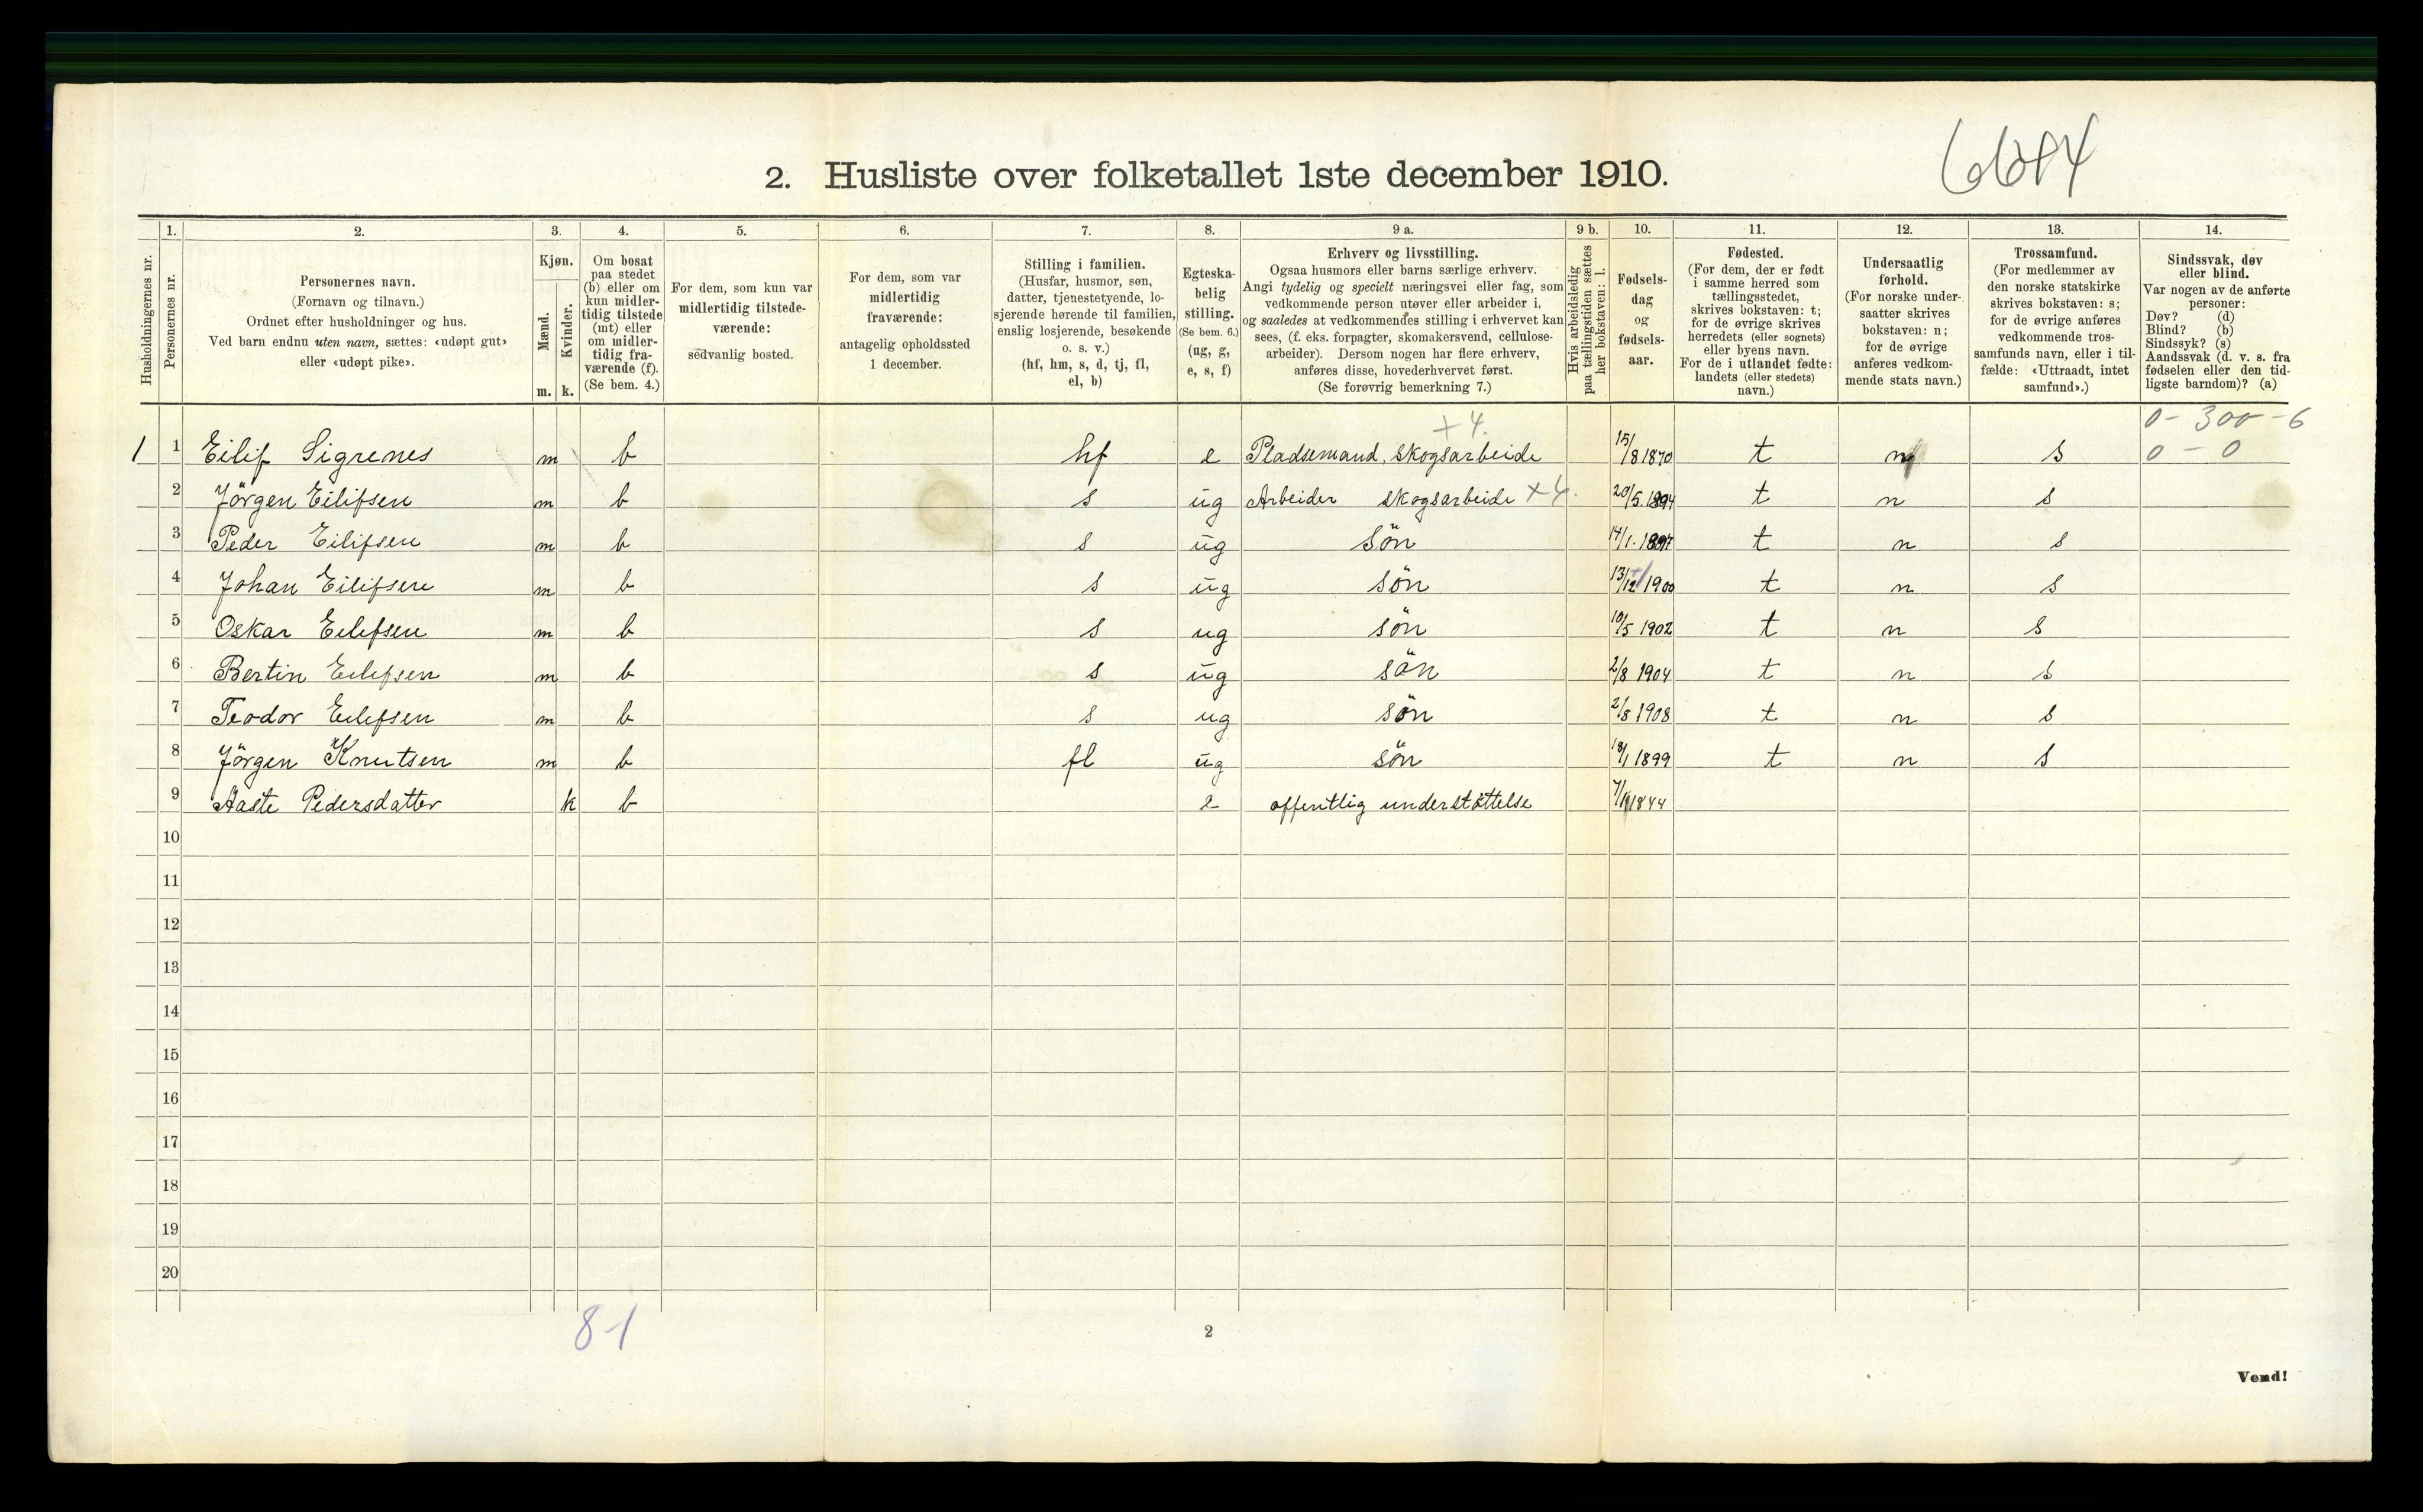 6684
2. Husliste over folketallet 1ste december 1910.
Husholdningernes nr.
1. Personernes nr.
2. Personernes navn.
(Fornavn og tilnavn.)
Ordnet efter husholdninger og hus.
Ved barn endnu uten navn, sættes: «udøpt gut»
eller «udøpt pike».
3. Kjøn.
Mænd. m.
Kvinder. k.
4. Om bosat
paa stedet
(b) eller om
kun midler-
tidig tilstede
(mt) eller
om midler-
tidig fra-
værende (f).
(Se bem. 4.)
5. For dem, som kun var
midlertidig tilstede-
værende:
sedvanlig bosted.
6. For dem, som var
midlertidig
fraværende:
antagelig opholdssted
1 december.
7. Stilling i familien.
(Husfar, husmor, søn,
datter, tjenestetyende, lo-
sjerende hørende til familien,
enslig losjerende, besøkende
o. s. v.)
(hf, hm, s, d, tj, fl,
el, b)
8. Egteska-
belig
stilling.
(Se bem. 6.)
(ug, g,
e, s, f)
9 a. Erhverv og livsstilling.
Ogsaa husmors eller barns særlige erhverv.
Angi tydelig og specielt næringsvei eller fag, som
vedkommende person utøver eller arbeider i,
og saaledes at vedkommendes stilling i erhvervet kan
sees, (f. eks. forpagter, skomakersvend, cellulose-
arbeider). Dersom nogen har flere erhverv,
anføres disse, hovederhvervet først.
(Se forøvrig bemerkning 7.)
9 b. Hvis arbeidsledig
paa tællingstiden sættes
her bokstaven: l.
10. Fødsels-
dag
og
fødsels-
aar.
11. Fødested.
(For dem, der er født
i samme herred som
tællingsstedet,
skrives bokstaven: t;
for de øvrige skrives
herredets (eller sognets)
eller byens navn.
For de i utlandet fødte:
landets (eller stedets)
navn.)
12. Undersaatlig
forhold.
(For norske under-
saatter skrives
bokstaven: n;
for de øvrige
anføres vedkom-
mende stats navn.)
13. Trossamfund.
(For medlemmer av
den norske statskirke
skrives bokstaven: s;
for de øvrige anføres
vedkommende tros-
samfunds navn, eller i til-
fælde: «Uttraadt, intet
samfund».)
14. Sindssvak, døv
eller blind.
Var nogen av de anførte
personer:
Døv? (d)
Blind? (b)
Sindssyk? (s)
Aandssvak (d. v. s. fra
fødselen eller den tid-
ligste barndom)? (a)
+4. 0 - 300 - 6
1 1 Eilif Sigrenes m b hf e Pladsemand, skogsarbeide 15/8 1870 t n s 0 - 0
2 Jörgen Eilifsen m b s ug Arbeider skogsarbeide +4. 20/5. 1894 t n s
3 Peder Eilifsen m b s ug sön 14/1. 1897 t n s
4 Johan Eilifsen m b s ug sön 13/12 1900 t n s
5 Oskar Eilifsen m b s ug sön 10/5 1902 t n s
6 Bertin Eilifsen m b s ug sön 2/8 1904 t n s
7 Teodor Eilifsen m b s ug sön 2/8 1908 t n s
8 Jörgen Knutsen m b fl ug sön 18/1 1899 t n s
9 Aaste Pedersdatter k b e offentlig understöttelse 1844
10
11
12
13
14
15
16
17
18
19
20
8-1
2
Vend!